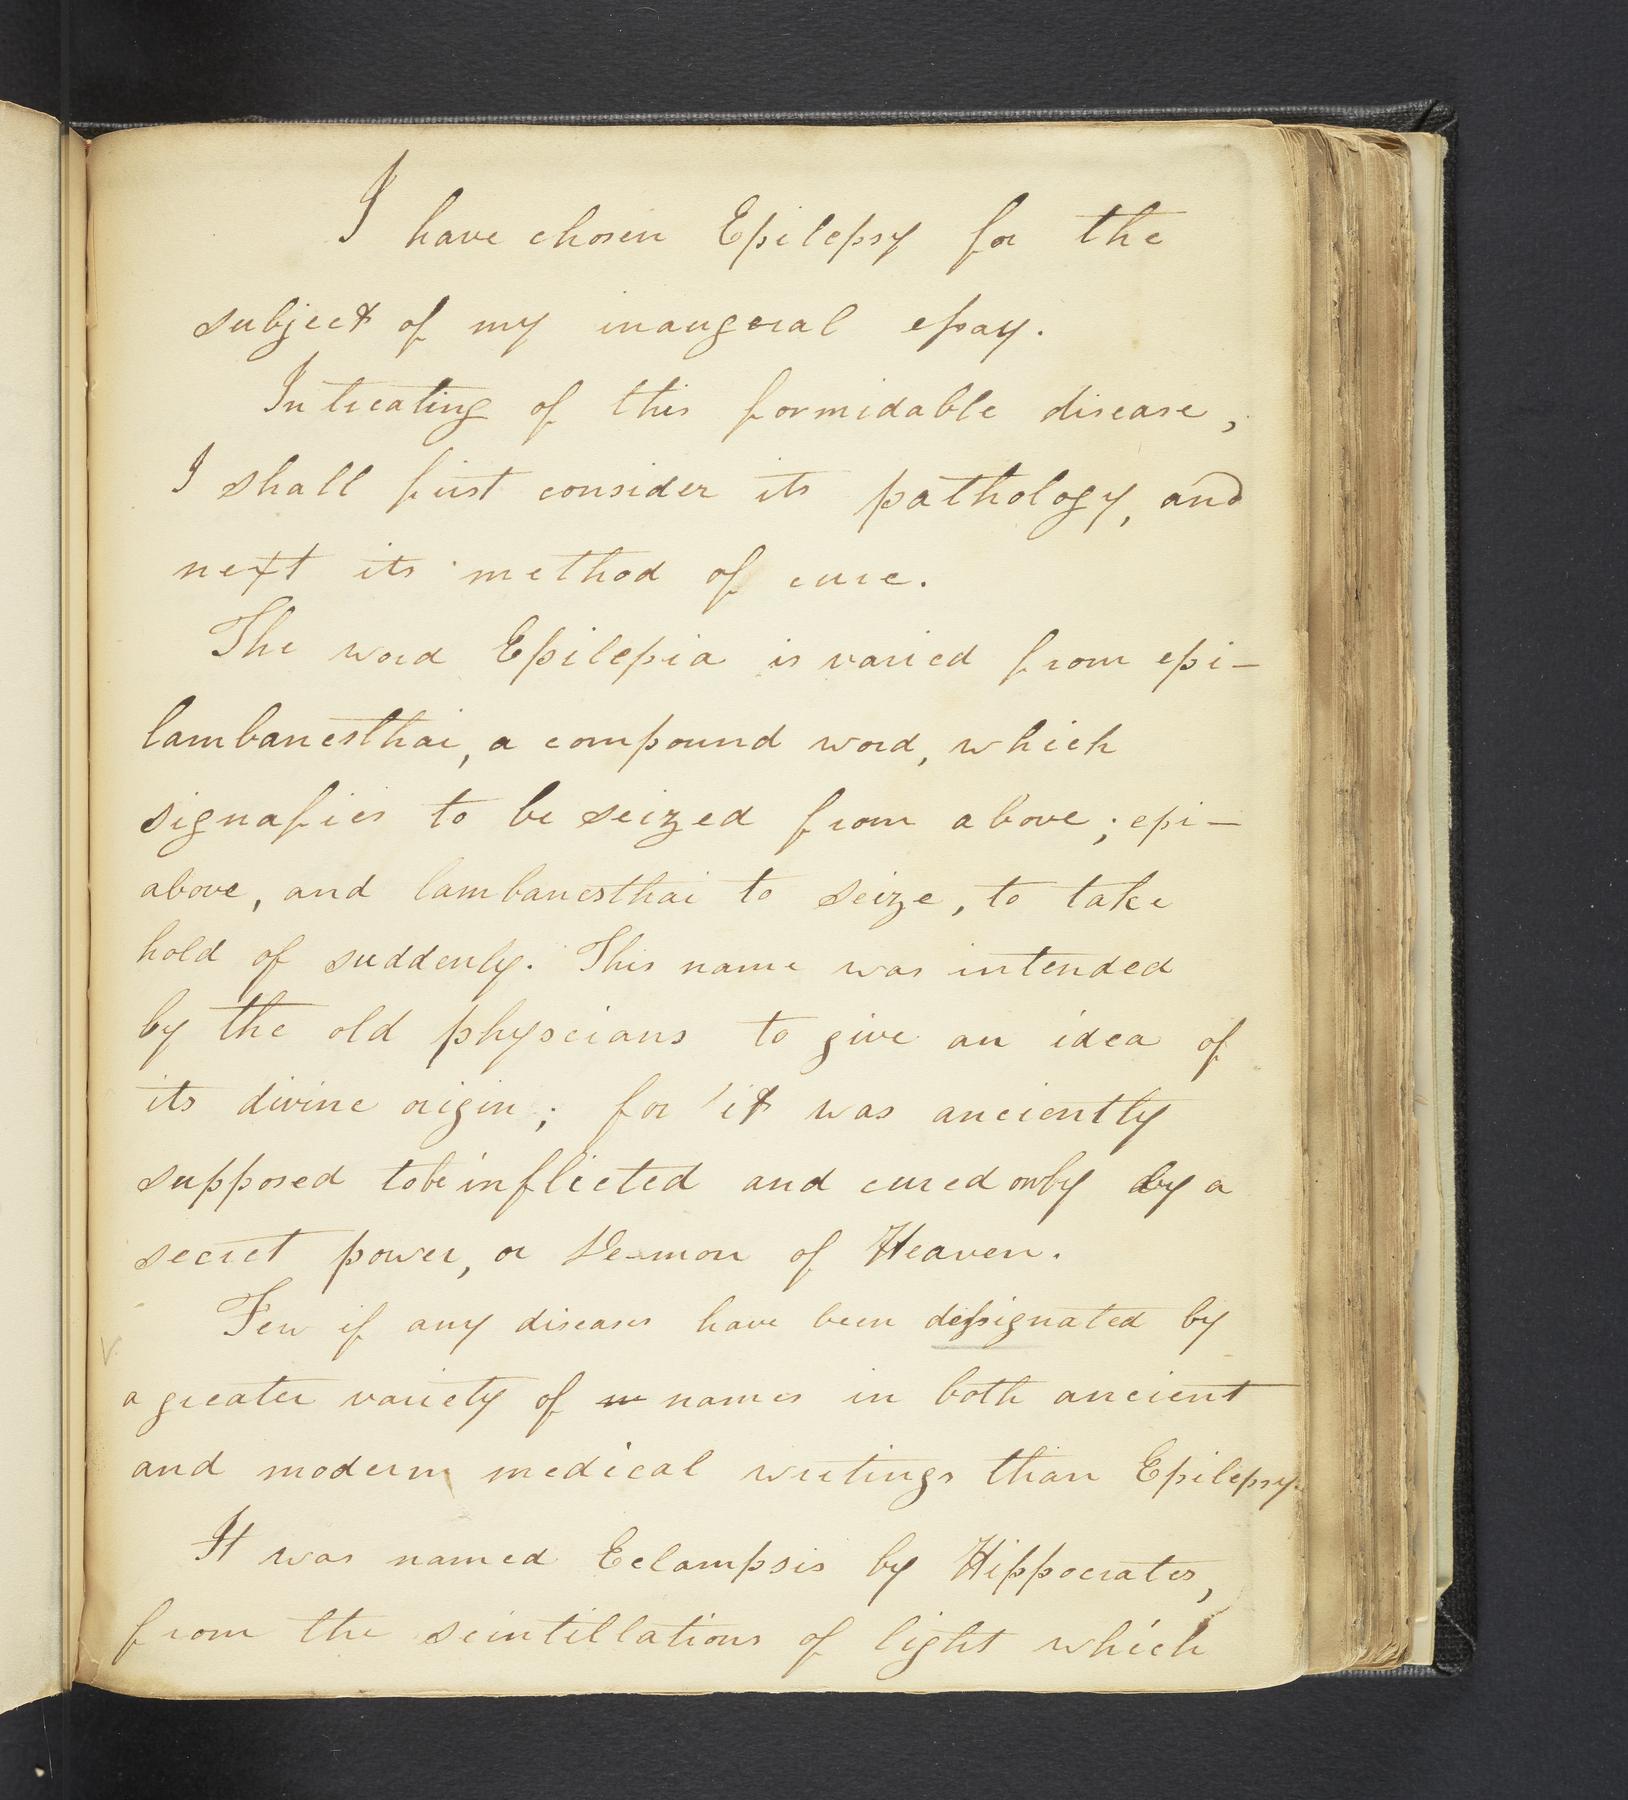 I have chosen Epilepsy for the
subject of my inaugeral essay.
In treating of this formidable disease,
I shall first consider its pathology, and
next its method of cure.
The word Epilepia is varied from epi-
lambanesthai, a compound word, which
signafies to be seized from above; epi-
above, and lambanesthai to seize, to take
hold of suddenly. This name was intended
by the old physcians to give an idea of
its divine origin; for it was anciently
supposed to be inflicted and cured only by a
secret power, or De-mon of Heaven.
Few if any diseases have been dessignated by
a greater variety of names in both ancient
and modern medical writings than Epilepsy.
It was named Eclampsis by Hippocrates,
from the scintillations of light which